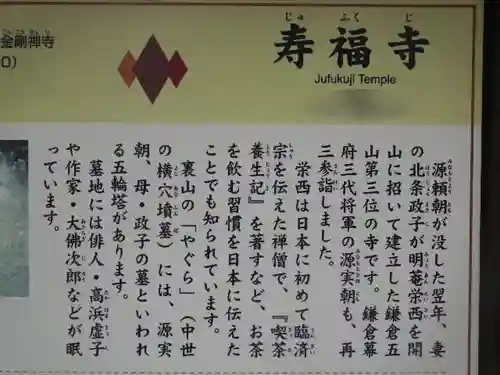 金剛禅寺
0)
寿福寺
じゅ ふく じ
Jufukuji Temple
源頼朝が没した翌年、妻
の北条政子が明菴栄西を開
山に招いて建立した鎌倉五
山第三位の寺です。鎌倉幕
府三代将軍の源実朝も、再
三参詣しました。
栄西は日本に初めて臨済
宗を伝えた禅僧で、『喫茶
養生記』を著すなど、お茶
を飲む習慣を日本に伝えた
ことでも知られています。
裏山の「やぐら」(中世
の横穴墳墓)には、源実
朝、母・政子の墓といわれ
る五輪塔があります。
墓地には俳人・高浜虚子
や作家・大佛次郎などが眠
っています。